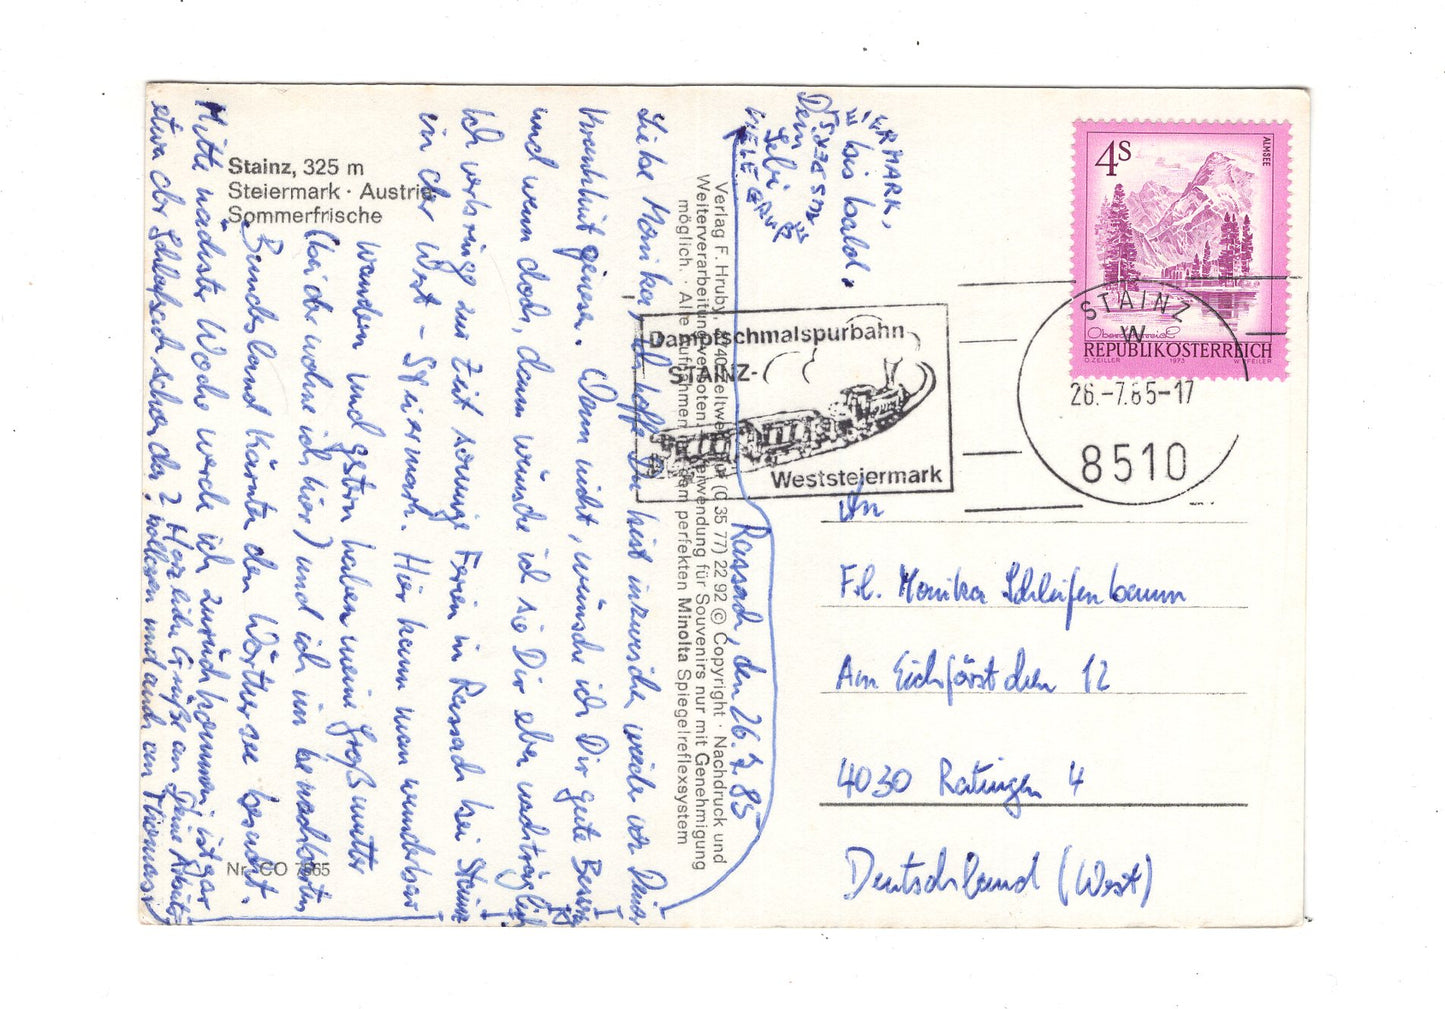 Stainz, 325 m
Steiermark · Austria
Sommerfrische
Nr. CO 7665
Verlag F. Hruby,
(0 35 77) 22 92 © Copyright · Nachdruck und
Weiterverarbeitung verboten
Verwendung für Souvenirs nur mit Genehmigung
möglich. · Alle Aufnahmen
dem perfekten Minolta Spiegelreflexsystem
Rassach, den 26.7.85
Liebe Monika, Ich hoffe Du bist inzwischen wieder von Deiner
Krankheit genesen. Wenn nicht, wünsche ich Dir gute Besserung
und wenn doch, dann wünsche ich sie Dir eben nachträglich
Ich verbringe zur Zeit sonnige Ferien in Rassach bei Stainz
in der West-Steiermark. Hier kann man wunderbar
wandern und gestern haben meine Großmutter
(bei der wohne ich hier) und ich im benachbarten
Bundesland Kärnten den Wörther see besucht.
Mitte nächster Woche werde ich zurückkommen, ist gar
etwa der Schlafsack schon da? Herzliche Grüße an Deine
und auch an Thomas,
bis bald,
Dein
Sebi
VIELE GRÜßE AUS DER STEIERMARK,
4S
ALMSEE
REPUBLIK ÖSTERREICH
O. ZEILLER 1973 W. PFEILER
Dampfschmalspurbahn
STAINZ-
Weststeiermark
STAINZ
W
26.-7.85-17
8510
An
Frl. Monika Schleifenbaum
Am Eichförstchen 12
4030 Ratingen 4
Deutschland (West)